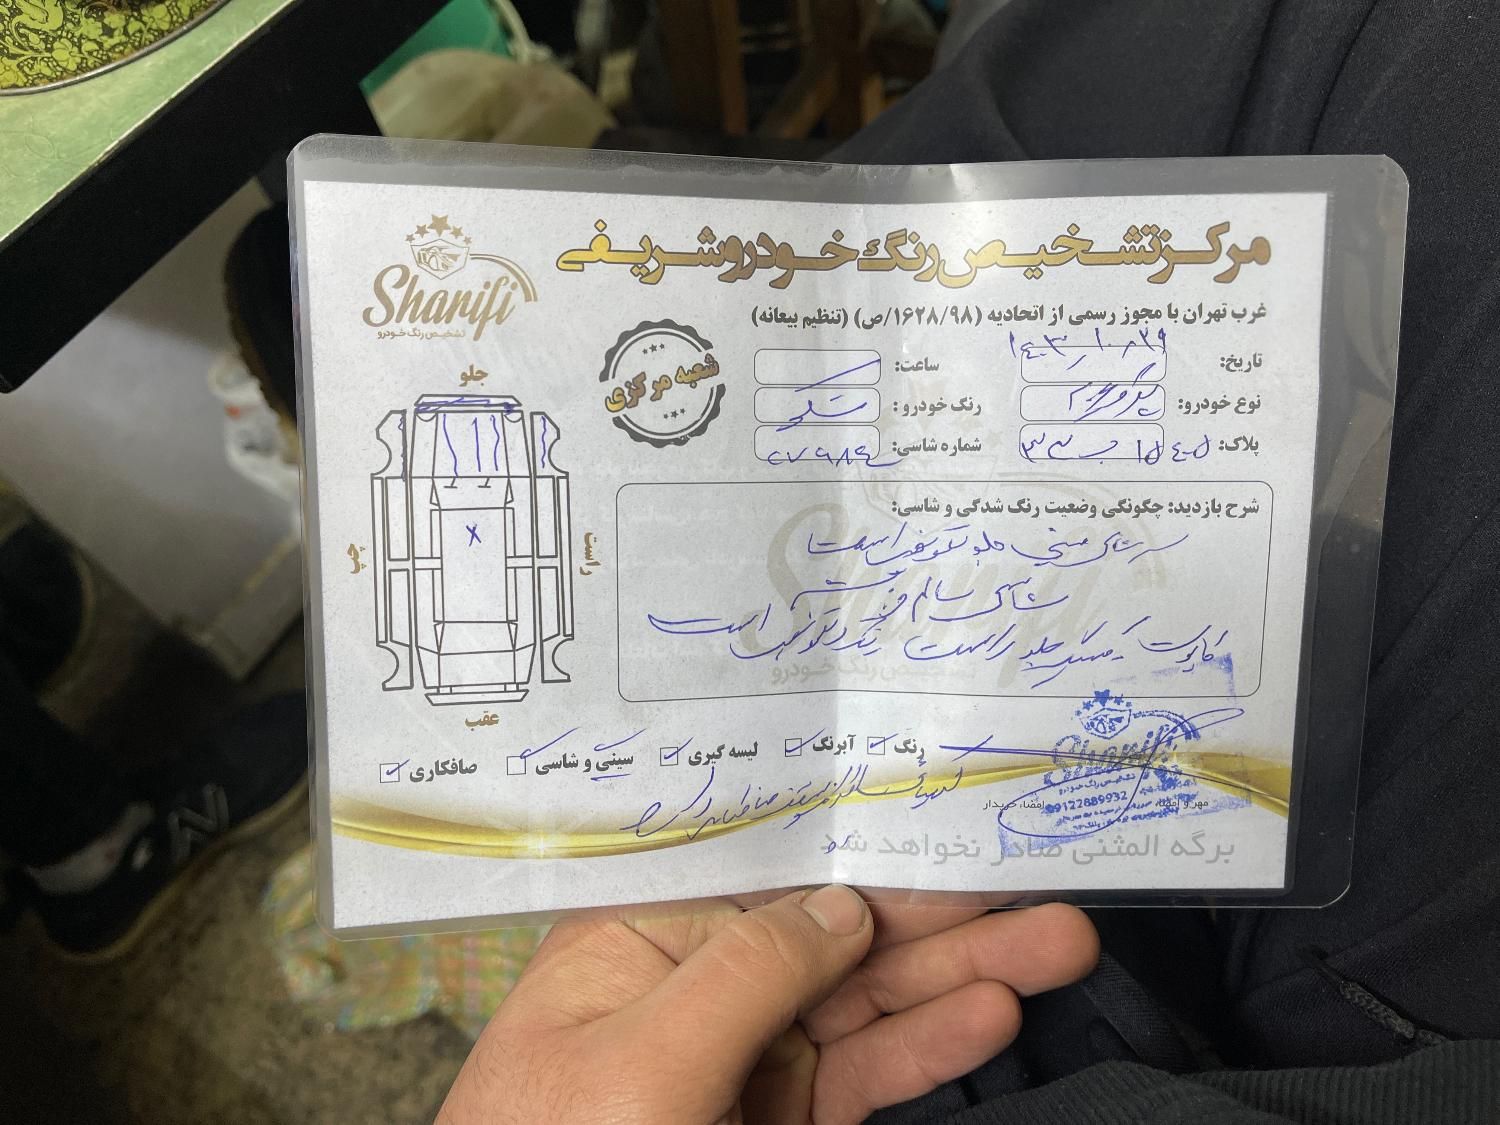 مرکز تشخیص رنگ خودرو شریفی
Sharifi
تشخیص رنگ خودرو
غرب تهران با مجوز رسمی از اتحادیه (۱۶۲۸/۹۸/ص) (تنظیم بیعانه)
تاریخ:
ساعت:
نوع خودرو:
رنگ خودرو:
پلاک:
شماره شاسی:
شعبه مرکزی
جلو
راست
چپ
عقب
X
شرح بازدید: چگونگی وضعیت رنگ شدگی و شاسی:
سرشاسی سینی جلو تعویض است
شاسی سالم
کاپوت گلگیر جلو راست رنگ و تعویض است
رنگ
آبرنگ
لیسه گیری
سینی و شاسی
صافکاری
Sharifi
تشخیص رنگ خودرو
09122889932
مهر و امضاء
امضاء خریدار
برگه المثنی صادر نخواهد شد